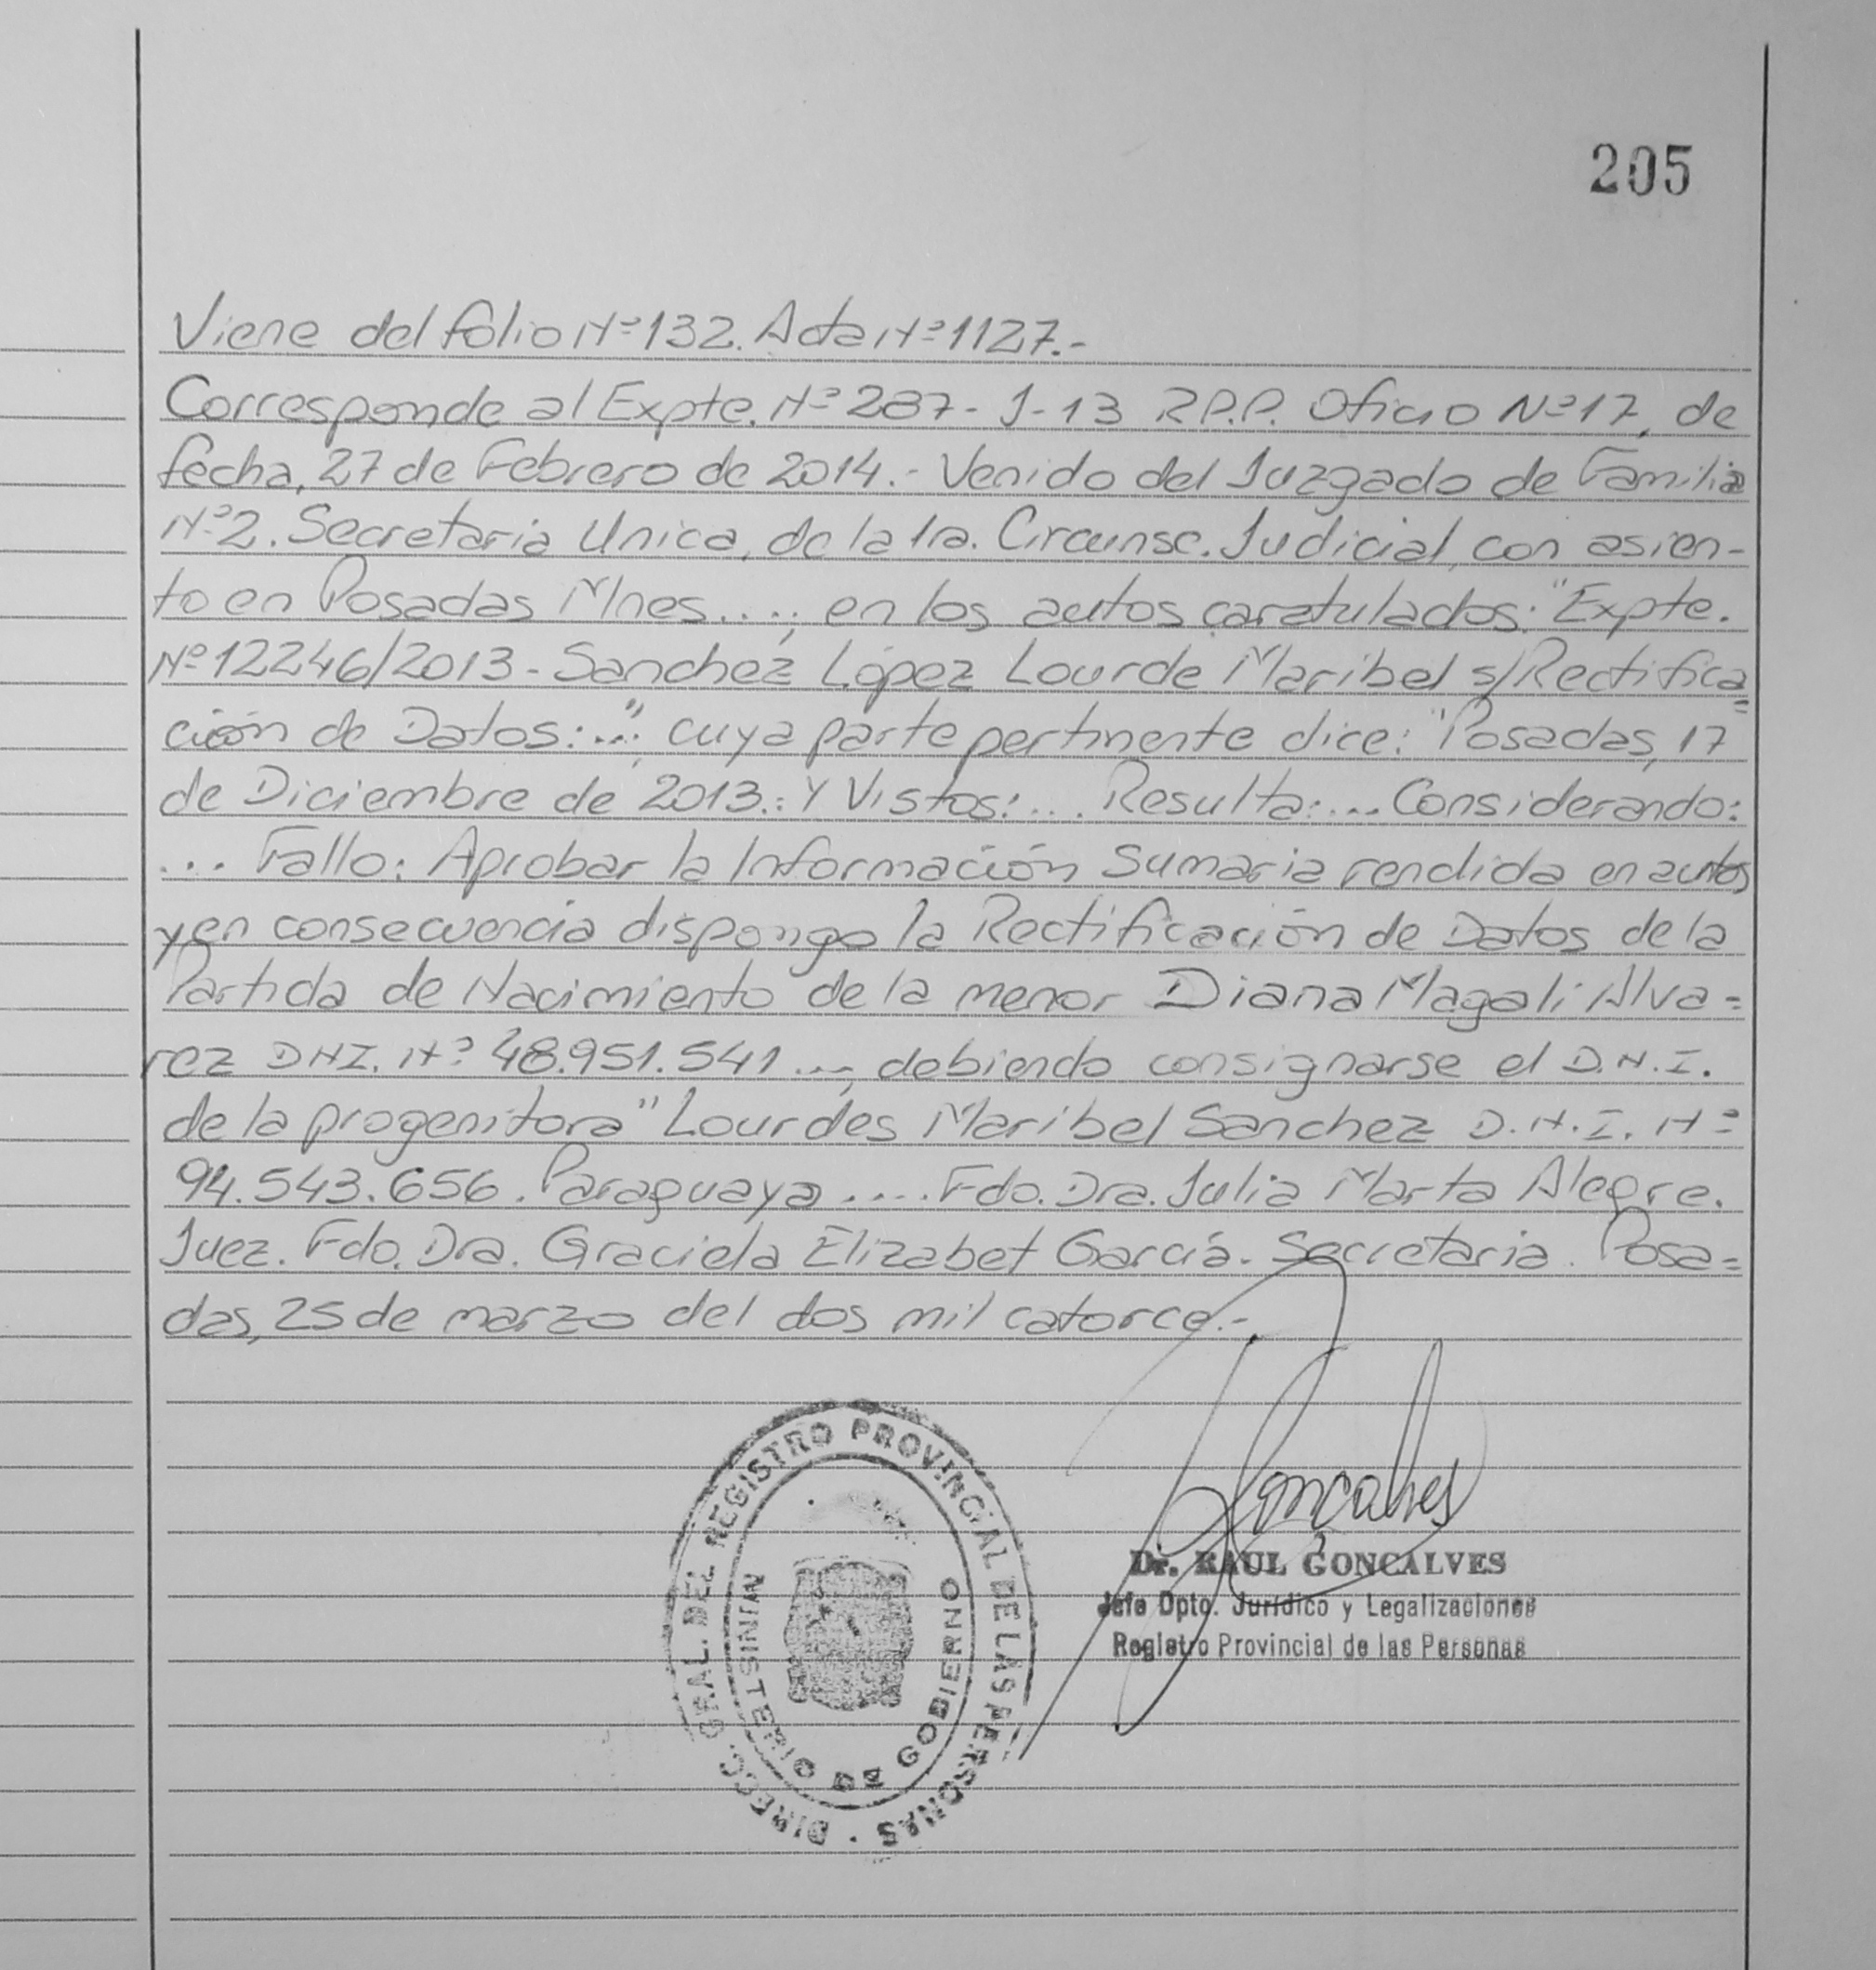 205
Viene del folio Nº 132. Acta Nº 1127.-
Corresponde al Expte. Nº 287- J-13 R.P.P. Oficio Nº 17, de
fecha, 27 de Febrero de 2014.- Venido del Juzgado de Familia
Nº 2. Secretaria Unica, de la 1ra. Circunsc. Judicial, con asien-
to en Posadas Mnes...., en los autos caratulados: "Expte.
Nº 12246/2013- Sanchez López Lourde Maribel s/Rectifica
ción de Datos:...", cuya parte pertinente dice: "Posadas, 17
de Diciembre de 2013.: Y Vistos:... Resulta:... Considerando:
... Fallo: Aprobar la Información Sumaria rendida en autos
y en consecuencia dispongo la Rectificación de Datos de la
Partida de Nacimiento de la menor Diana Magali Alva=
rez DNI. Nº 48.951.541 ..., debiendo consignarse el D.N.I.
de la progenitora "Lourdes Maribel Sanchez D.N.I. Nº
94.543.656. Paraguaya .... Fdo. Dra. Julia Marta Alegre.
Juez. Fdo. Dra. Graciela Elizabet García. Secretaria. Posa=
das, 25 de marzo del dos mil catorce.-
Goncalves
Dr. RAUL GONCALVES
Jefe Dpto. Jurídico y Legalizaciones
Registro Provincial de las Personas
DIRECC. GRAL. DEL REGISTRO PROVINCIAL DE LAS PERSONAS
MINISTERIO DE GOBIERNO